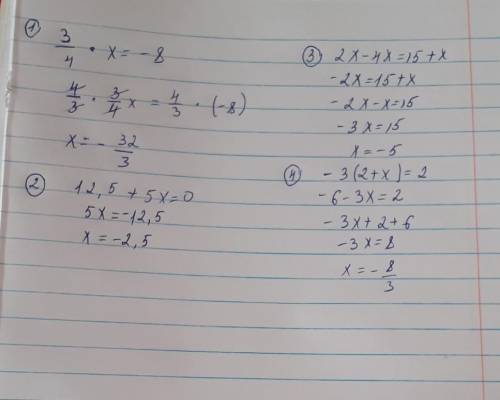 ① 3/4 · x = -8
4/3 · 3/4 x = 4/3 · (-8)
x = - 32/3
② 12,5 + 5x = 0
5x = -12,5
x = -2,5
③ 2x - 4x = 15 + x
-2x = 15 + x
-2x - x = 15
-3x = 15
x = -5
④ -3(2+x) = 2
-6 - 3x = 2
-3x + 2 + 6
-3x = 8
x = - 8/3